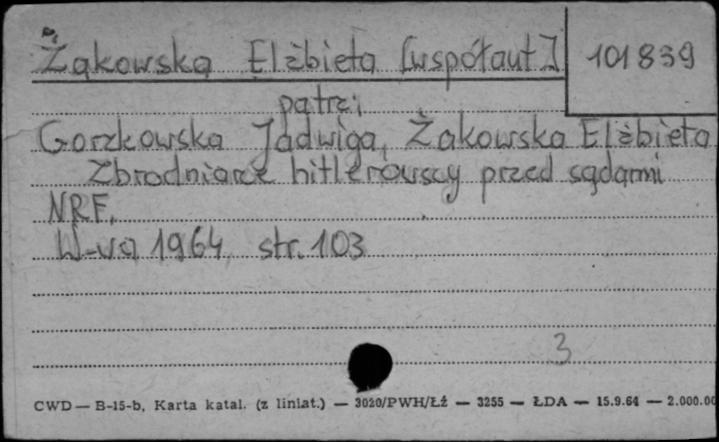 Żąkowska Elżbieta [współaut.] 101839
patrz:
Gorzkowska Jadwiga, Żakowska Elżbieta
Zbrodniarze hitlerowscy przed sądami
NRF.
W-wa 1964, str. 103
3
CWD — B-15-b, Karta katal. (z liniat.) — 3020/PWH/Łź — 3255 — ŁDA — 15.9.64 — 2.000.00